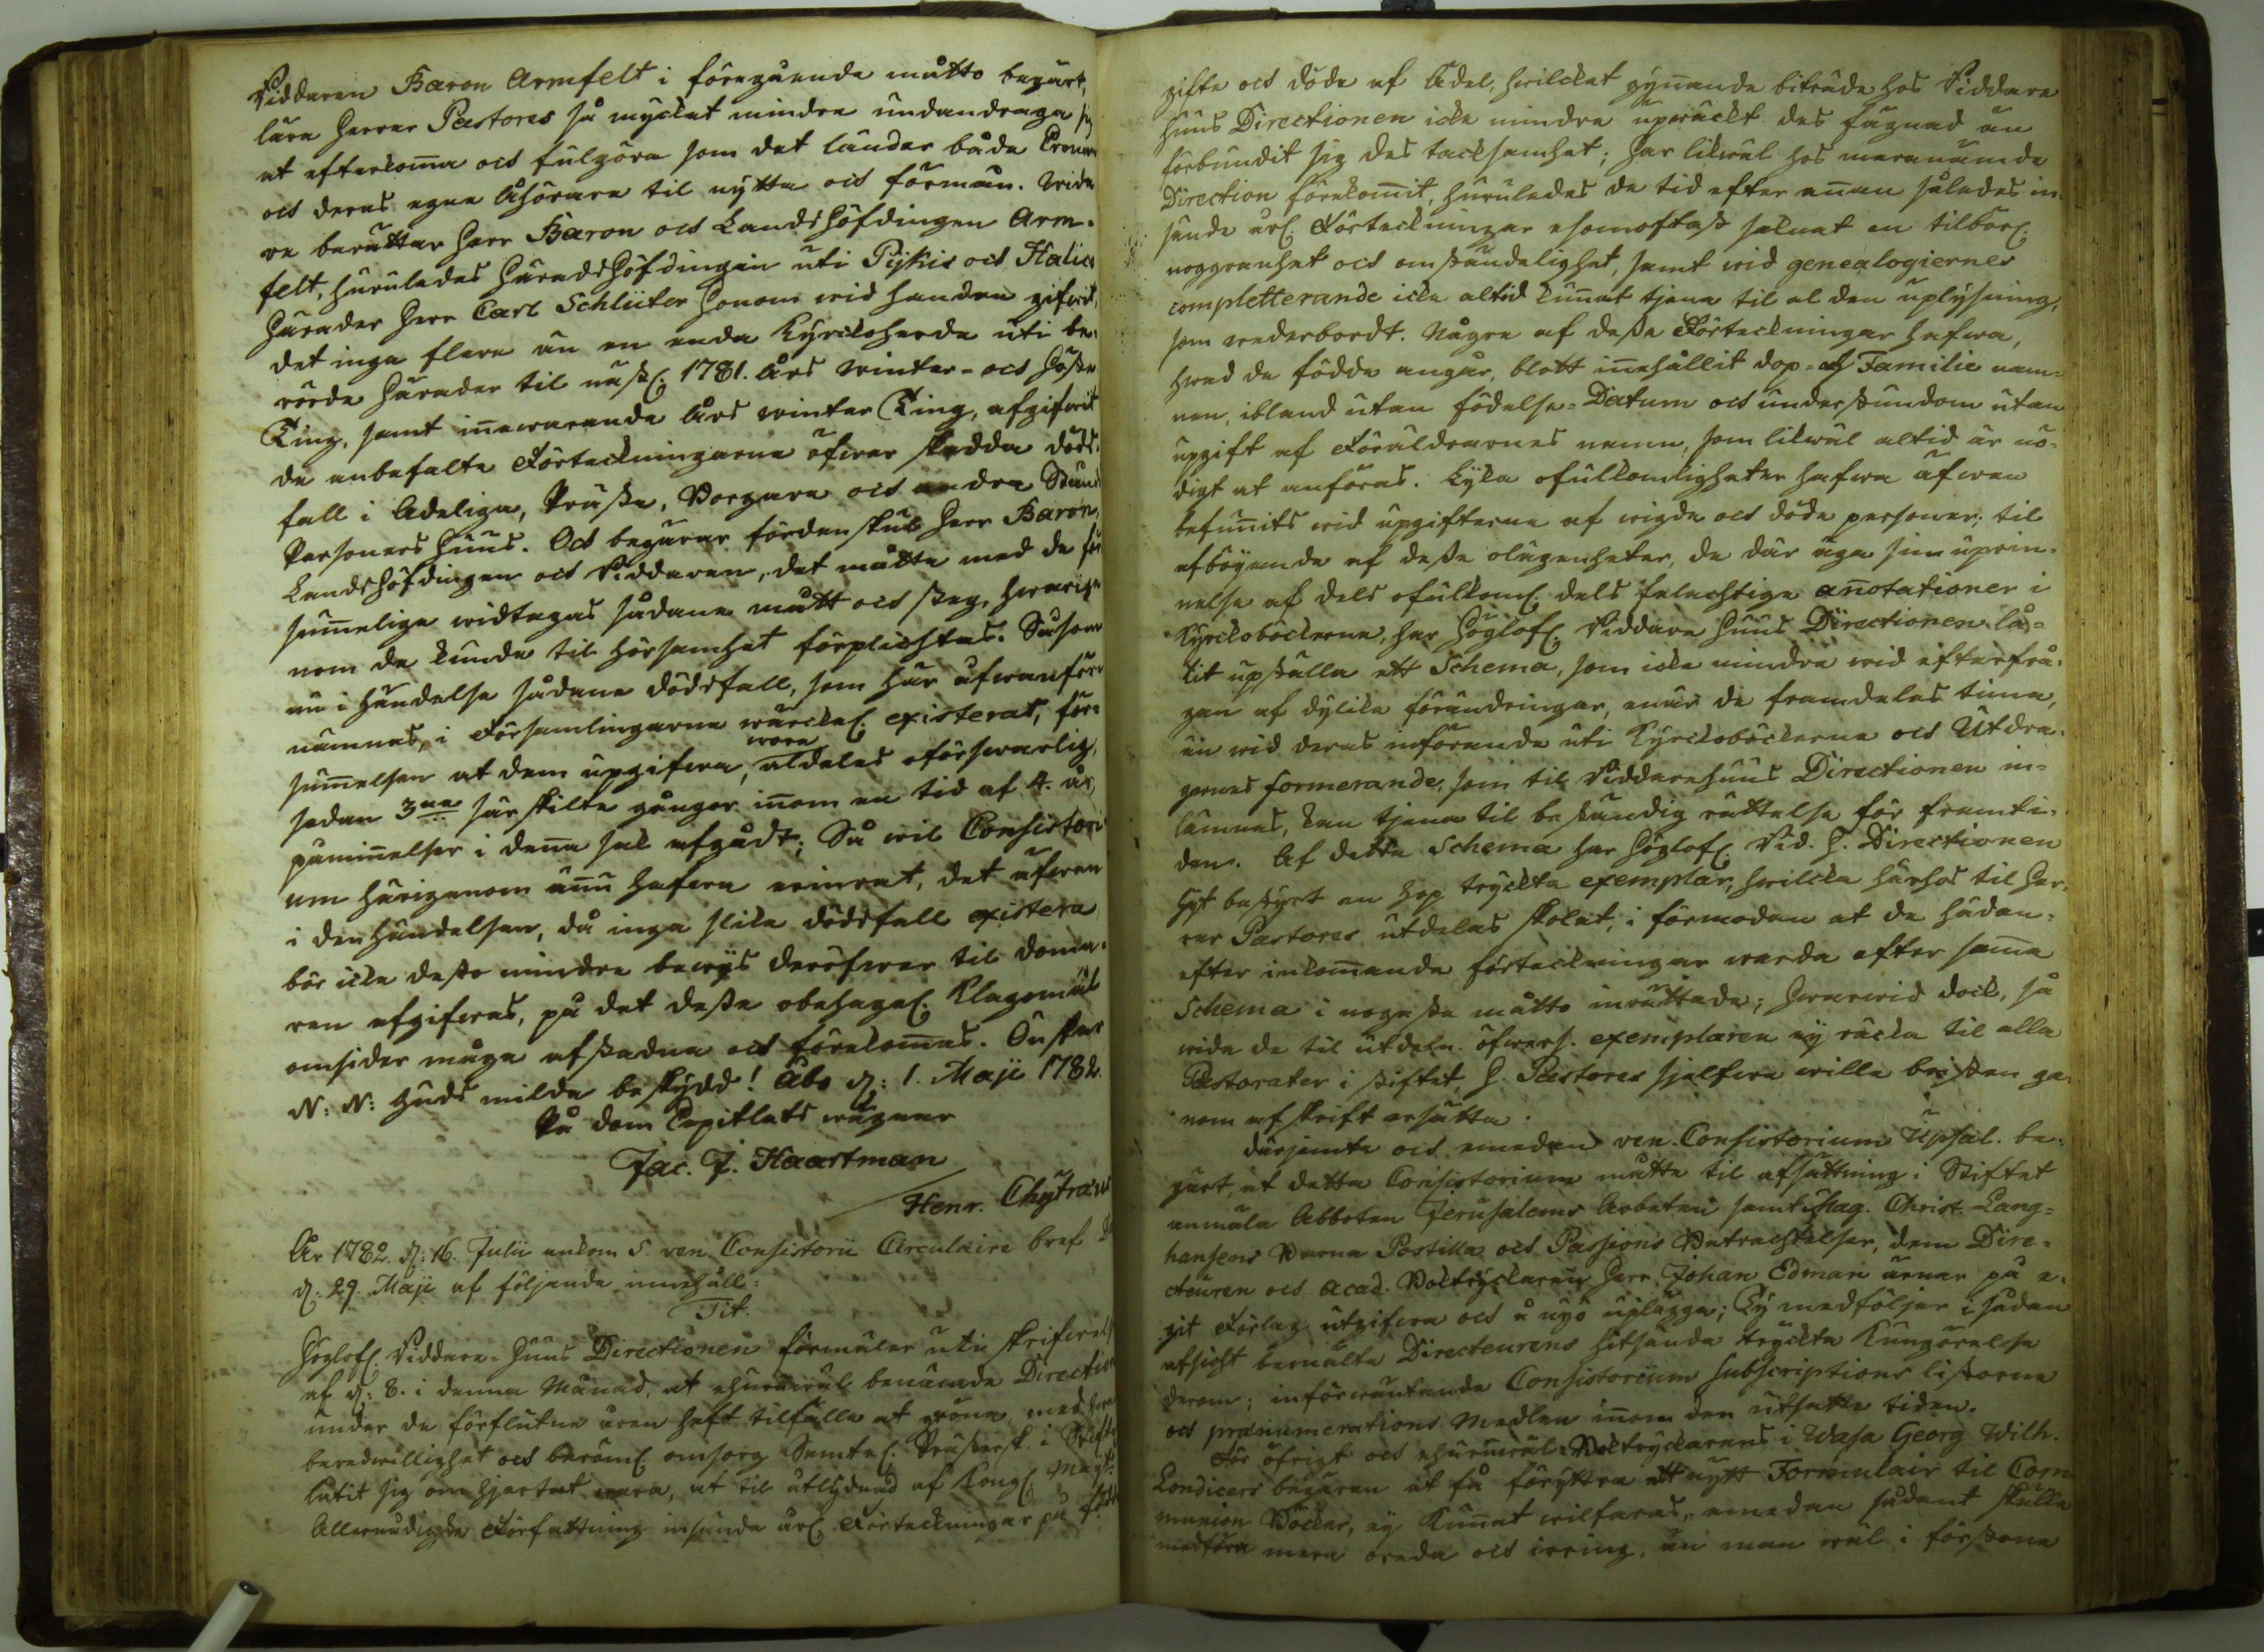 Riddaren Baron Armfelt i föregående måtto begärt,
lära Herrar Pastores så mycket mindre undandraga sig
at efterkom̄a och fulgöra som det länder både Cronan
och deras egne Åhörare til nytta och förmån. Wida-
re berättar Herr Baron och Landshöfdingen Arm-
felt, huruledes Häradshöfdingen uti Pijkis och Halico
Härader Herr Carl Schlüter honom wid handen gifwit,
det inga flera än en enda Kyrckoherde uti be-
rörde Härader til näst. 1781. års Winter- och Höste
Ting, samt in̄ewarande Års winter Ting, afgifwit
de anbefalte Förteckningarne öfwer skedda döds-
fall i Adeliga, Präste, Borgare och andra Stånds
Personers Huus. Och begärar fördenskul Herr Baron,
Landshöfdingen och Riddaren, det måtte med de för
sum̄elige widtagas sådane mått och steg, hwarige-
nom de kunde til hörsamhet förplichtas. Såsom
nu i händelse sådane dödsfall, som här ofwanföre
nämnas, i Församlingarne wärckel. existerat, för-
sum̄elsen at dem upgifwa, wore aldeles oförswarlig,
sedan 3ne särskilte gånger in̄om en tid af 4. år,
påmin̄elser i den̄a sak afgådt; Så wil Consistori-
um härigenom än̄u hafwa erinrat, det äfwen
i den händelsen, då inga slika dödsfall existera,
bör icke desto mindre bewijs deröfwer til Doma-
ren afgifwas, på det desse obehagel. Klagomål
omsider måga afstadna och förekom̄as. Önskar
N: N: Guds milda beskydd! Åbo d: 1. Maji 1782.
På Dom Capitlets wägnar
Jac. J. Haartman
Henr. Chytræus
År 1782. d: 16. Julii ankom S. ven. Consistorii Circulaire bref
d: 29. Maji af följande innehåll:
Tit.
Höglofl. Riddare-Huus Directionen förmäler uti skrifwelse
af d: 8. i denna Månad, at ehuruwäl benämde Direction
under de förflutne åren haft tilfälle at röna, med hwad
beredwillighet och berömel. omsorg Samtel. Prästersk. i Stiftet
låtit sig om hjertat wara, at til åtlydnad af Kongl. Maj:ts
Allernådigste Författning insända årl. Förteckningar på födde
gifte och döde af Adel, hwilcket gynnande biträde hos Riddare
Huus Directionen icke mindre upwäckt des fägnad än
förbundit sig des tacksamhet; har likwäl hos meranämde
Direction förekom̄it, huruledes de tid efter an̄an således in-
sände årl. Förteckningar esomoftast saknat en tilbörl.
noggranhet och omständelighet, samt wid genealogiernes
completterande icke altid kun̄at tjena til al den uplysning,
som wederbordt. Någre af desse Förteckningar hafwa,
hwad de födde angår, blott in̄ehållit dop- och Familie nam-
nen, ibland utan födelse-Datum och understundom utan
upgift af Föräldrarnes namn, som likwäl altid är nö-
digt at anföras. Lyka ofullkomligheter hafwa äfwen
befun̄its wid upgifterne af wigde och döde personer; til
afböjande af desse olägenheter, de där äga sin uprin-
nelse af dels ofullkoml. dels felachtige an̄otationer i
Kyrckoböckerne, har Höglofl. Riddare Huus Directionen lå-
tit upställa ett Schema, som icke mindre wid efterfrå-
gan af dylika förändringar, enär de framdeles tima,
än wid deras införande uti Kyrckoböckerne och Utdra-
garnes formerande, som til Riddarehuus Directionen in-
lämnas, kan tjena til beständig rättelse för framti-
den. Af detta Schema har Höglofl. Rid. H. Directionen
hit bestyrt en hop tryckta exemplar, hwilcka härhos til Her-
rar Pastores utdelas skolat, i förmodan at de hädan-
efter inkom̄ande förteckningar warda efter sam̄a
Schema i nogaste måtto inrättade; hwarwid dock, så
wida de til utdeln. öfwers. exemplaren ej räcka til alla
Pastorater i Stiftet, H. Pastores sjelfwa wille bristen ge-
nom afskrift ersätta.
Därjemte och emedan ven. Consistorium Upsal. be-
gärt, at detta Consistorium måtte til afsättning i Stiftet
anmäla Abboten Jerusalems Arbeten samt Mag. Christ. Lang-
hansens Barna Postilla och Passions Betrachtelser, dem Dire-
cteuren och Acad. Boktryckaren Herr Johan Edman ärnar på e-
git Förlag utgifwa och å nyo uplägga; Ty medföljer i sådan
afsicht bemälte Directeurens hitsände tryckta Kungörelse
derom; införwäntande Consistorium Subscriptions listorne
och prænumerations Medlen in̄om den utsatte tiden.
För öfrigt och ehuruwäl Boktryckarens i Wasa Georg Wilh.
Londicers begäran at få förytra ett nytt Formulair til Com-
munion Böcker, ej kun̄at wilfaras, emedan sådant skulle
medföra mera oreda och irring, än man wäl i förstone